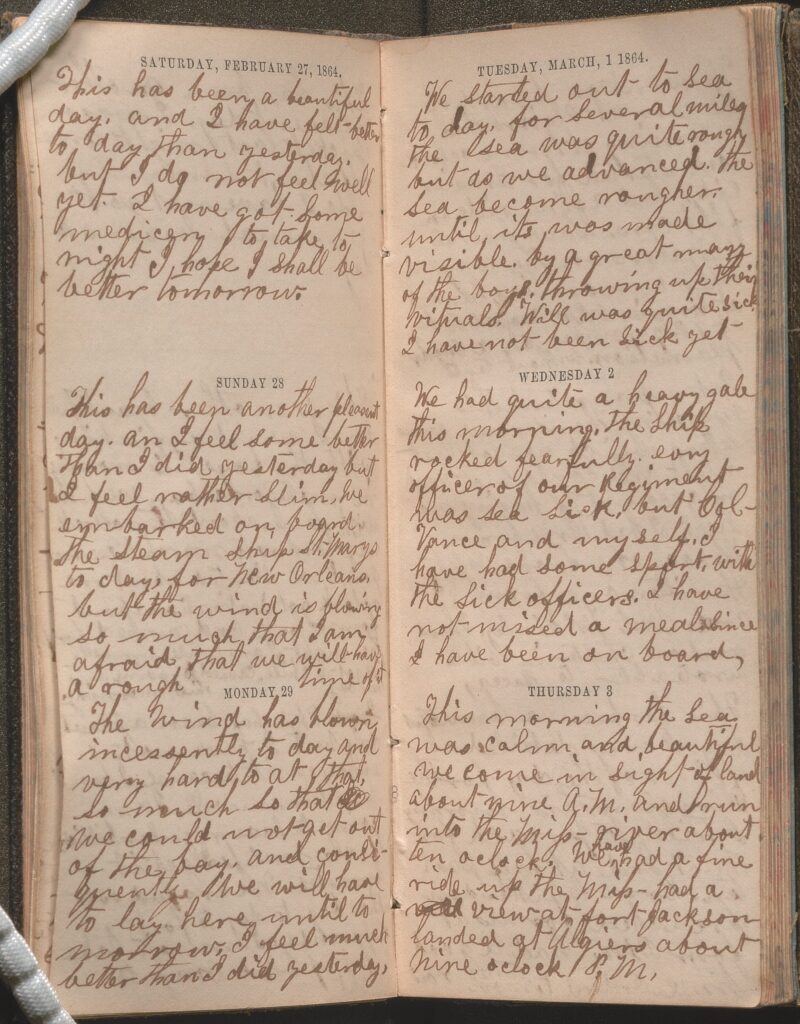 SATURDAY, FEBRUARY 27, 1864.
This has been a beautiful
day. and I have felt better
to day than yesterday.
but I do not feel well
yet. I have got some
medicen to take to
night I hope I shall be
better tomorrow.
SUNDAY 28
This has been another pleasant
day. an I feel some better
than I did yesterday but
I feel rather slim, we
embarked on board
the Steam Ship St. Marys
to day, for New Orleans,
but the wind is blowing
so much, that I am
afraid that we will have
a rough time of it
MONDAY, 29
The Wind has blown
incessently to day and
very hard, to at that,
so much so that
we could not get out
of the bay. and conse-
quently We will have
to lay here until to
morrow. I feel much
better than I did yesterday.
TUESDAY, MARCH, 1 1864.
We started out to sea
to day. for several miles
the sea was quite rough
but as we advanced. the
sea become rougher.
until its was made
visible. by a great many
of the boys. throwing up their
vituals. Will was quite sick
I have not been sick yet
WEDNESDAY 2
We had quite a heavy gale
this morning. the Ship
rocked fearfully. evry
officer of our Regiment
was sea sick, but Col-
Vance and myself. I
have had some sport, with
the sick officers. I have
not missed a meal since
I have been on board,
THURSDAY 3
This morning the sea
was calm and beautiful
we come in sight of land
about nine A.M. and run
into the Miss- river about
ten oclock. We have had a fine
ride up the Miss- had a
view at fort Jackson
landed at Algiers about
nine oclock P.M.